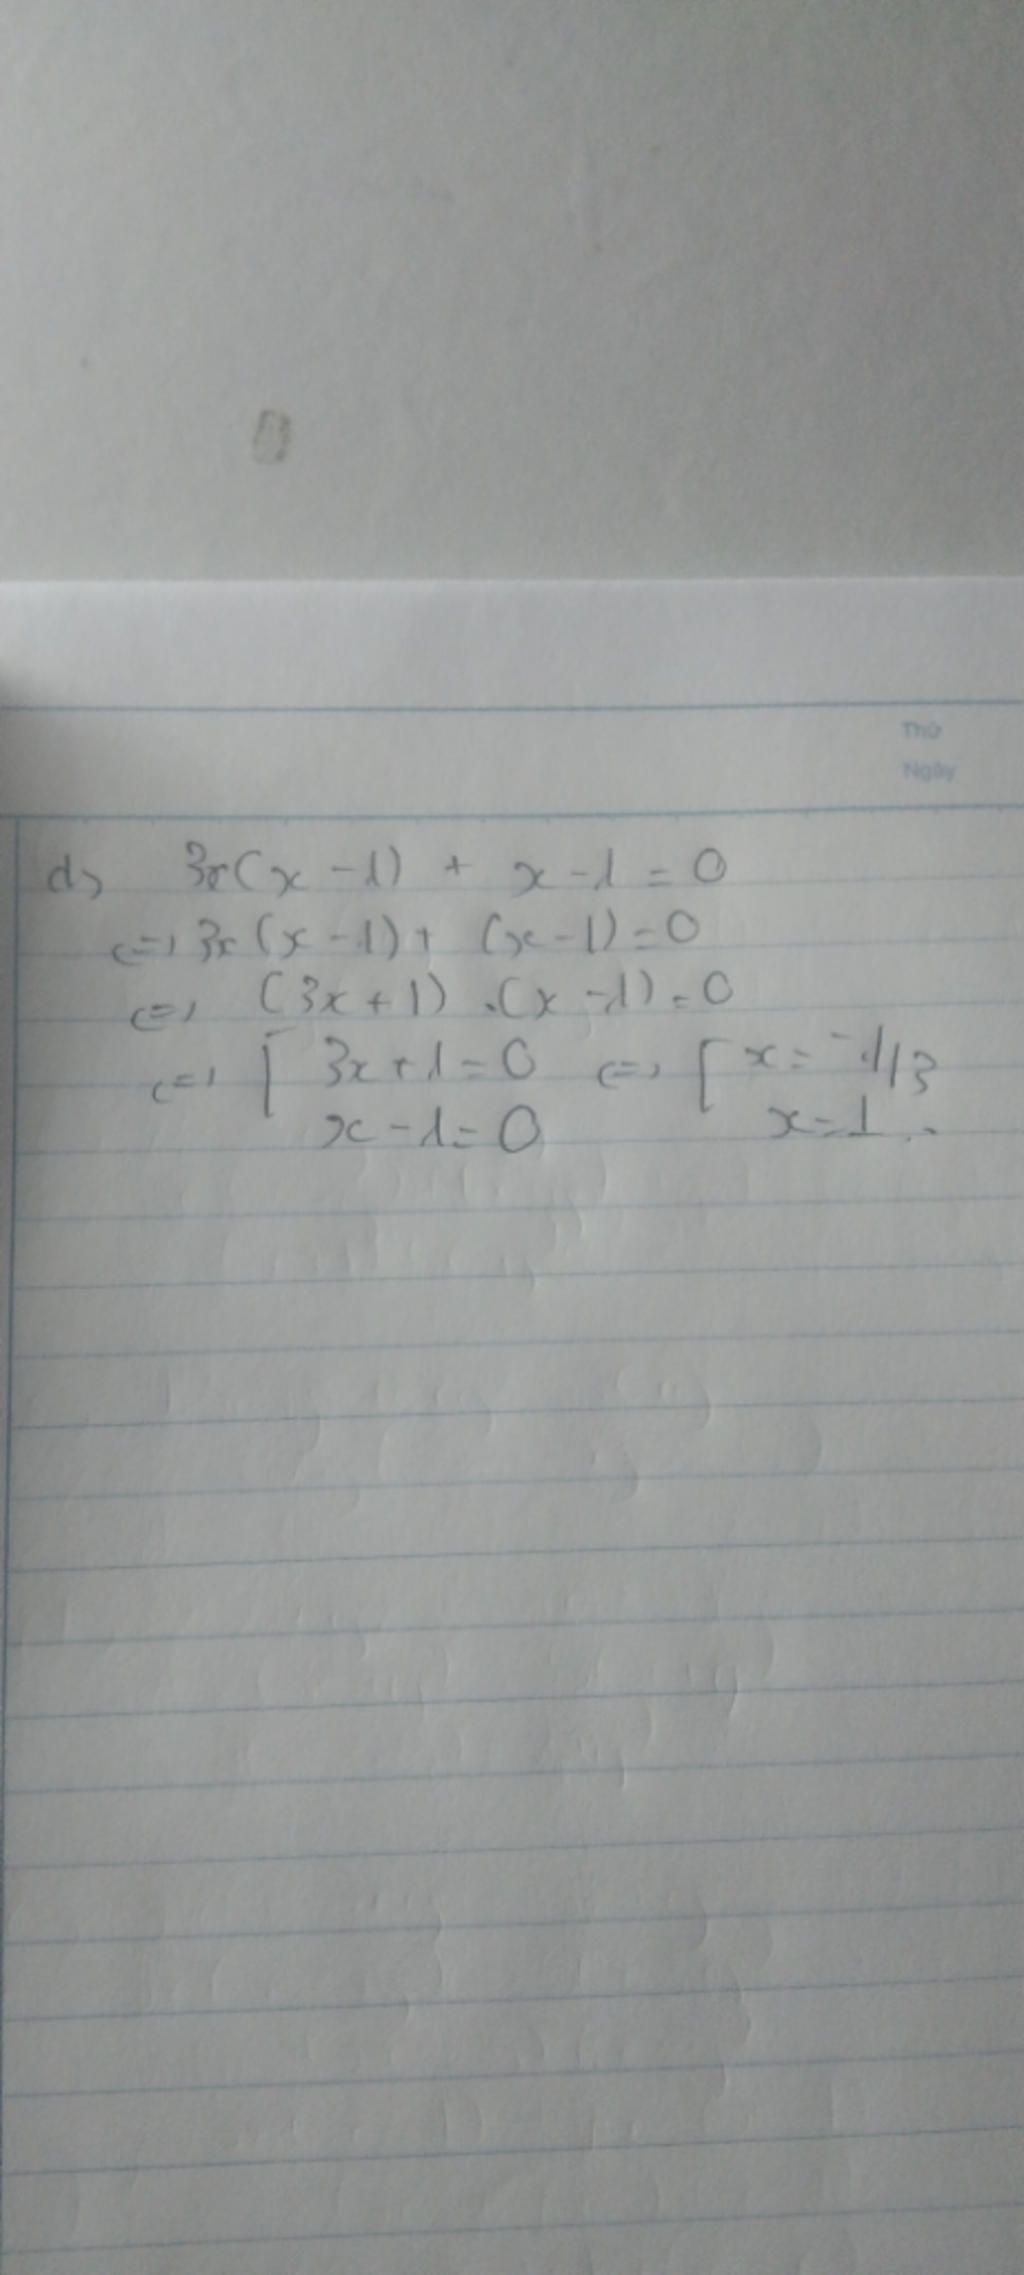 Thứ
Ngày
d) 3x(x-1) + x-1=0
<=> 3x(x-1)+ (x-1)=0
<=> (3x+1).(x-1)=0
<=> [ 3x+1=0 <=> [ x=-1/3
x-1=0 x=1.